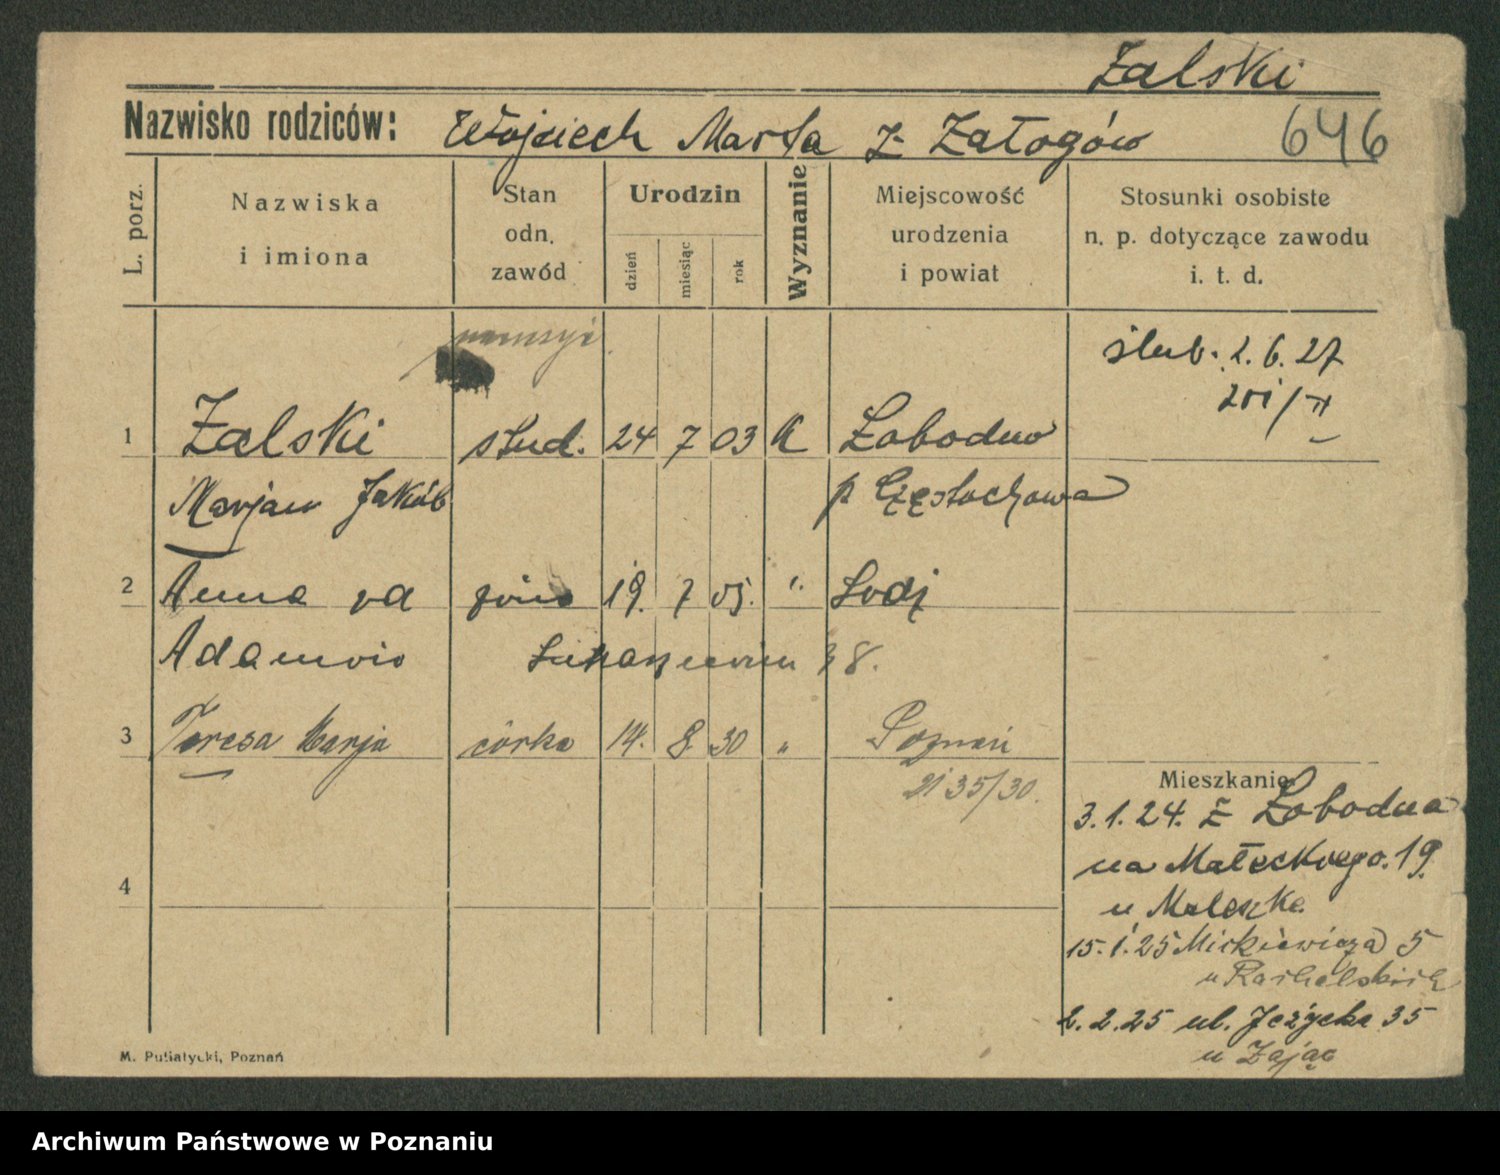 Zalski
Nazwisko rodziców: Wojciech Marta z Załogów 646
L. porz.
Nazwiska i imiona
Stan odn. zawód
Urodzin
dzień
miesiąc
rok
Wyznanie
Miejscowość urodzenia i powiat
Stosunki osobiste n. p. dotyczące zawodu i. t. d.
ślub. 2. 6. 27
1 Zalski stud. 24 7 03 K Łobodno
Marjan Jakób p Częstochowa
2 Anna od żona 19. 7 05. " Łodź
Adamów 38.
3 Teresa Marja córka 14. 8 30 " Poznań
35/30.
4
Mieszkanie
3. 1. 24. z Łobodna
na Małeckiego. 19.
u
15. 1. 25 Mickiewicza 5
u
2. 2. 25 ul. Jeżycka 35
u Zając
M. Putiatycki, Poznań
Archiwum Państwowe w Poznaniu